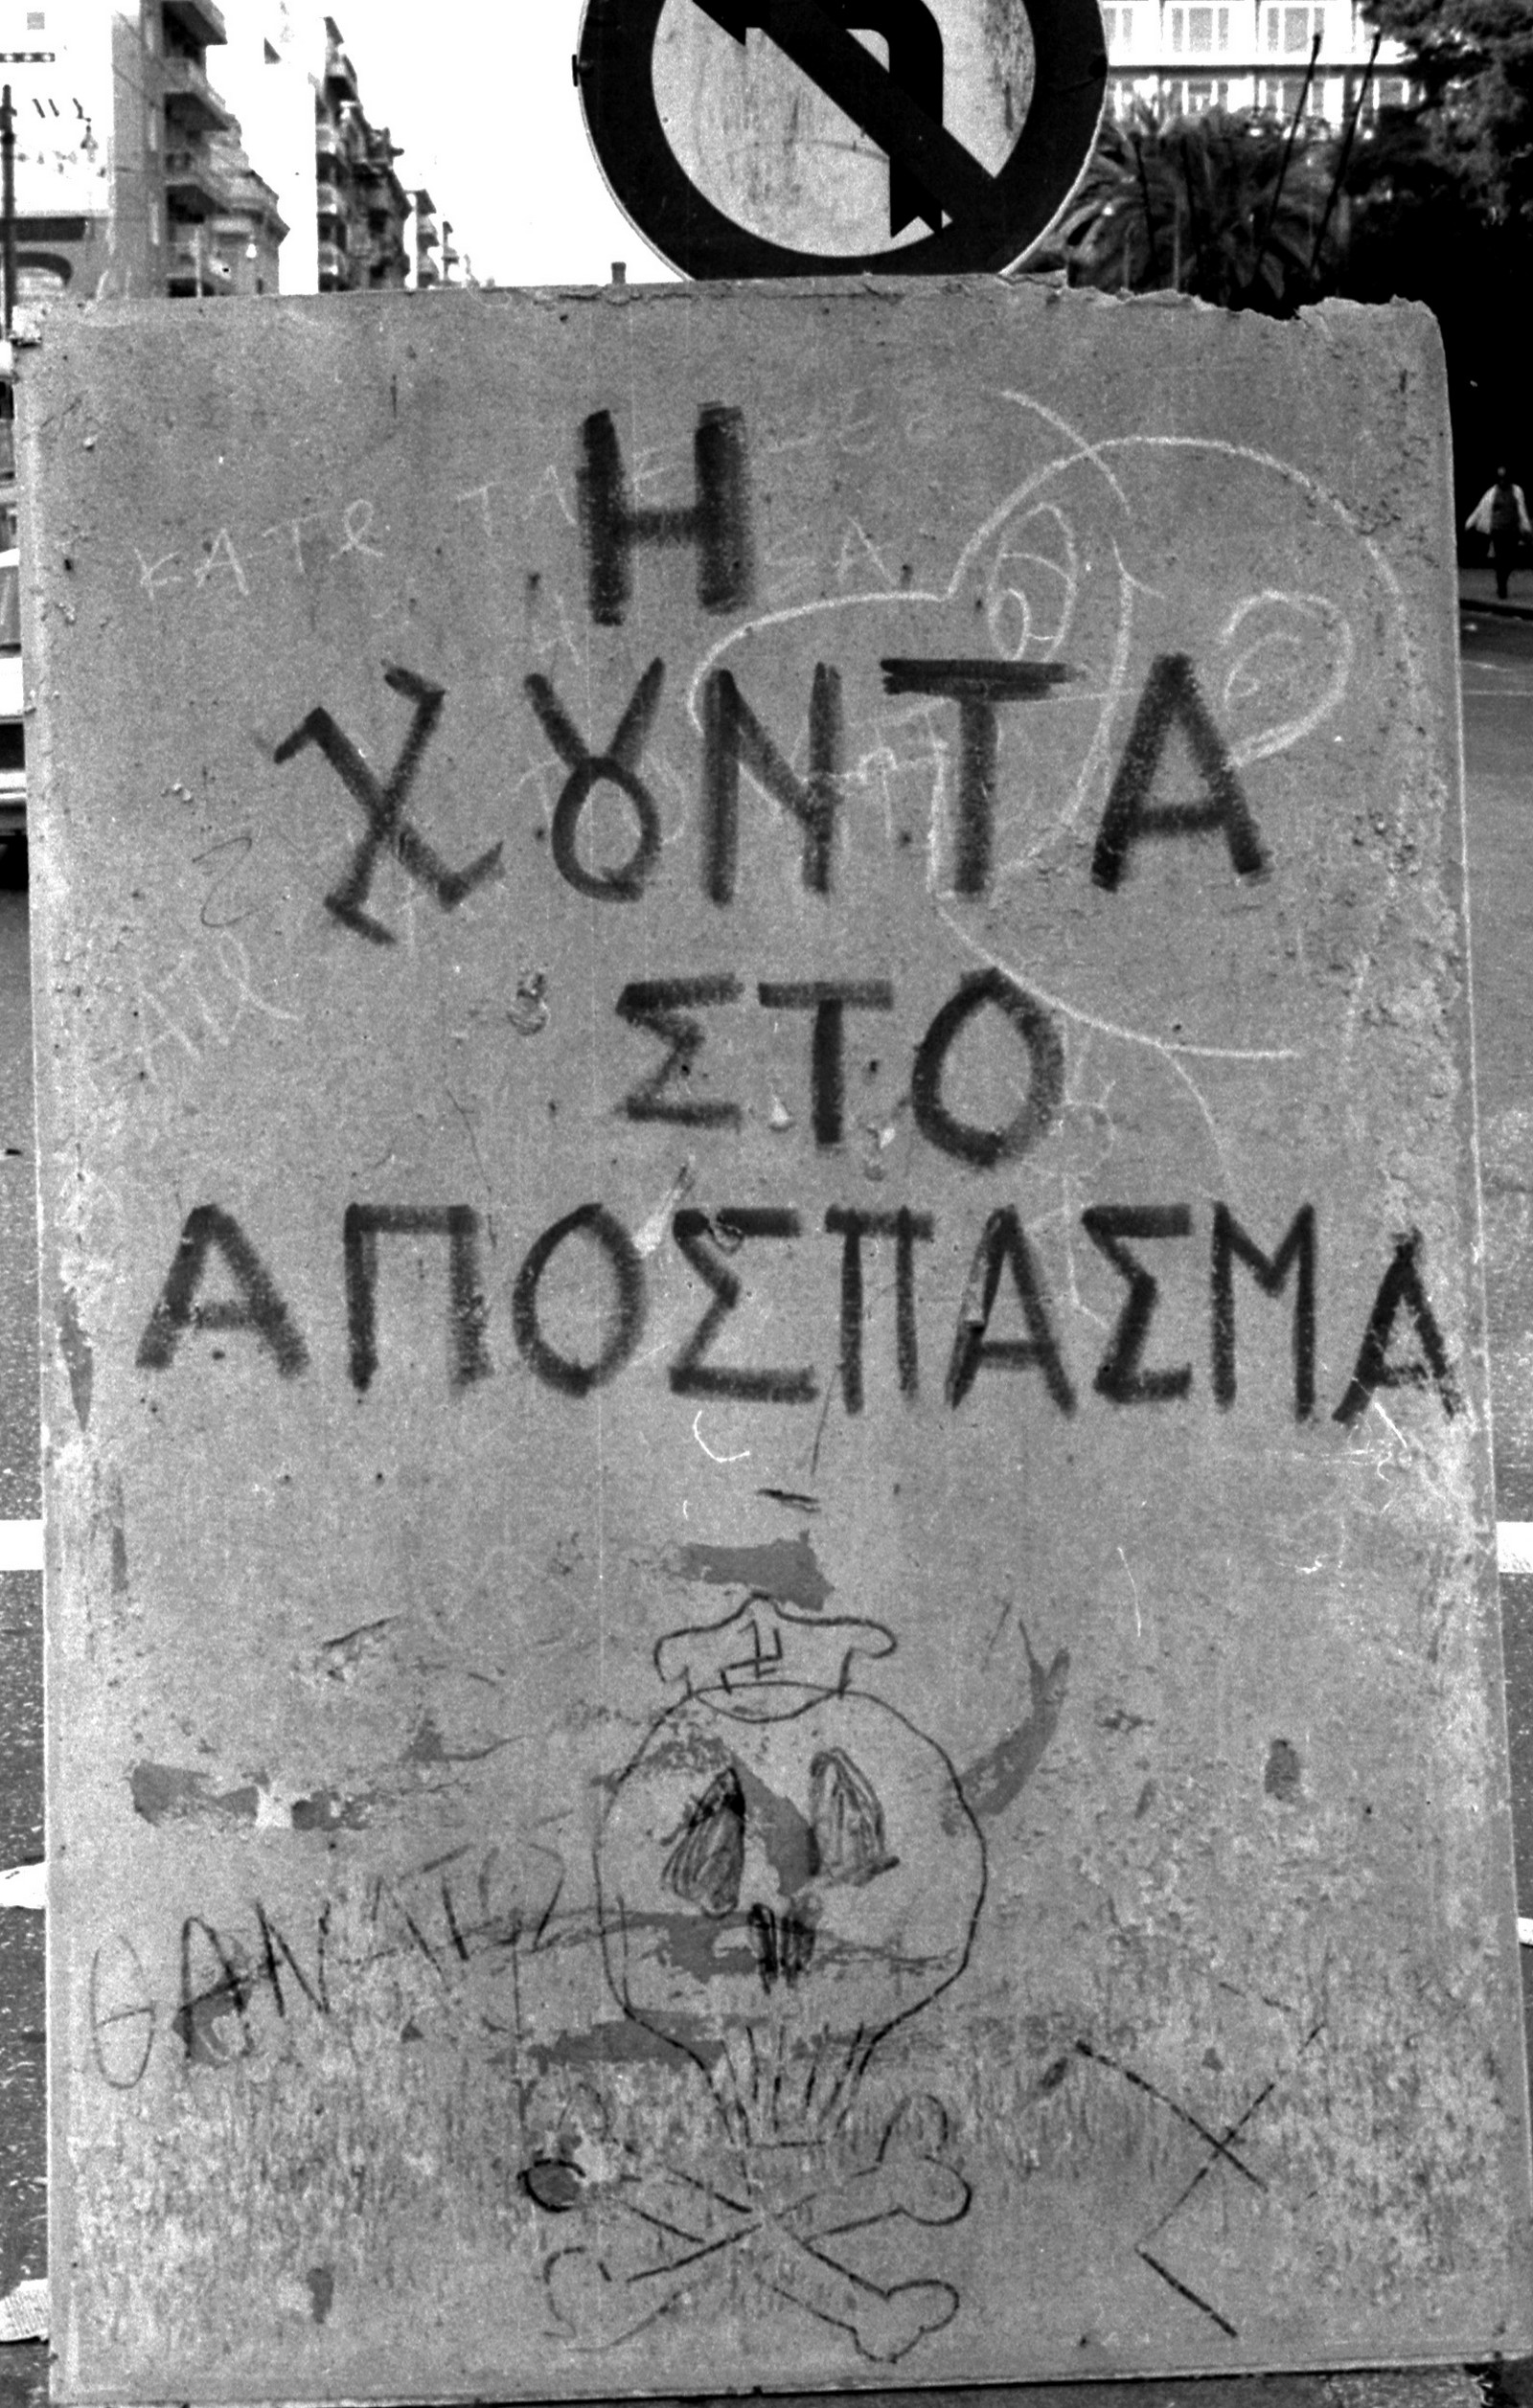 ΚΑΤΩ
Η
ΧȢΝΤΑ
ΣΤΟ
ΑΠΟΣΠΑΣΜΑ
ΘΑΝΑΤΟΣ